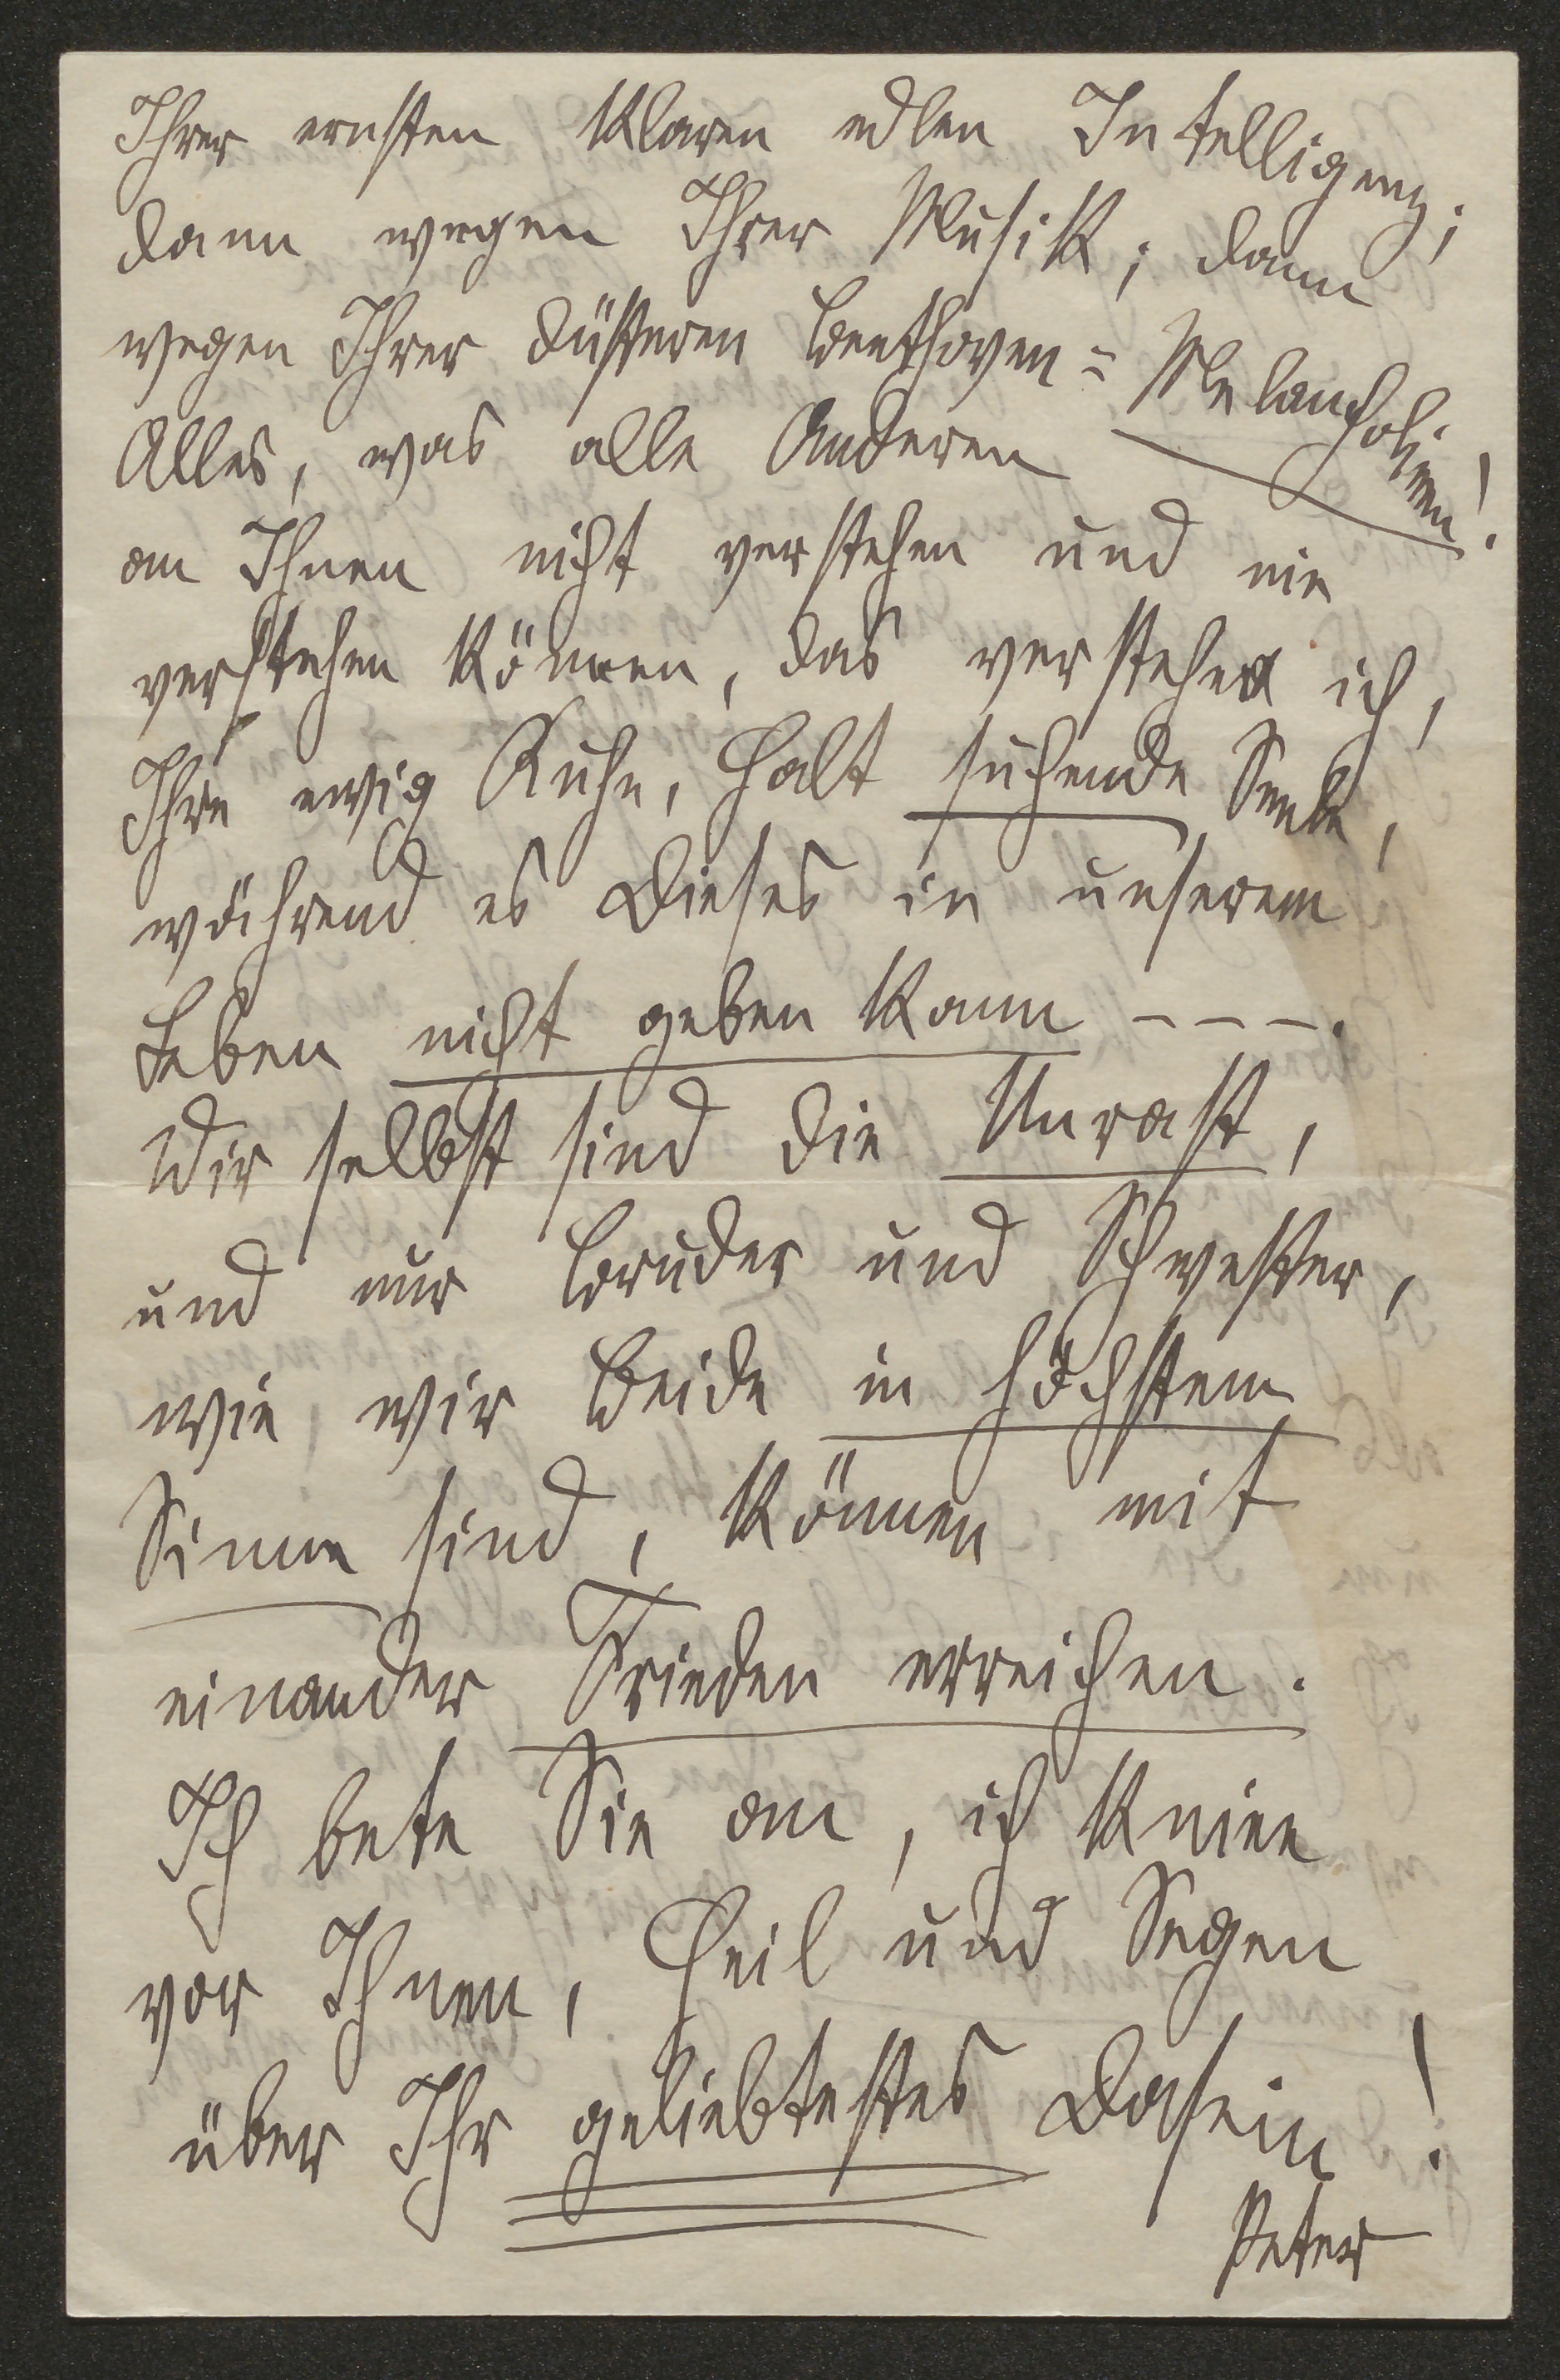 Ihrer ernsten klaren edlen Intelligenz;
dann wegen Ihrer Musik; dann
wegen Ihrer düsteren Beethoven=Melancholieen!
Alles, was alle Anderen
an Ihnen nicht verstehen und nie
verstehen können, das verstehe ich,
Ihre ewig Ruhe, Halt suchende Seele,
während es Dieses in unserem
Leben nicht geben kann - - - .
Wir selbst sind die Unrast,
und nur Bruder und Schwester,
wie wir Beide in höchstem
Sinne sind, können mit
einander Frieden erreichen.
Ich bete Sie an, ich kniee
vor Ihnen, Heil und Segen
über Ihr geliebtestes Dasein!
Peter